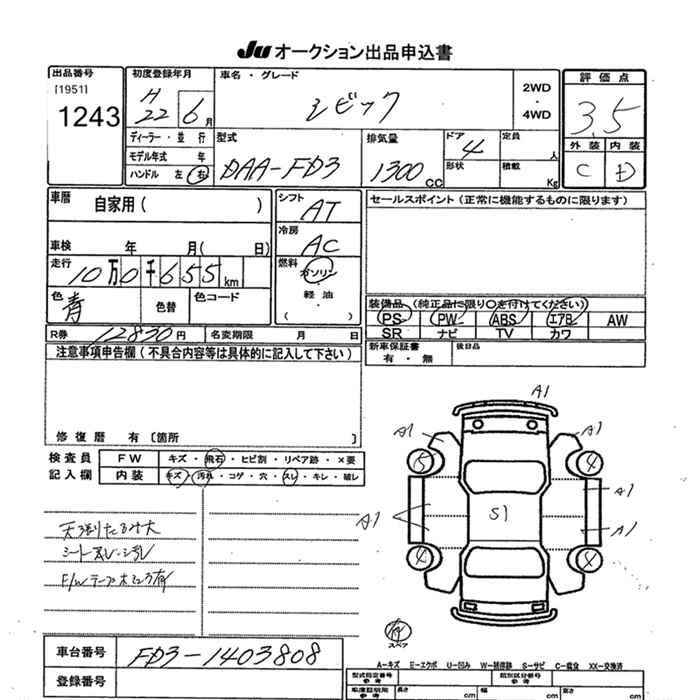 Ju オークション出品申込書
出品番号 初度登録年月 車名・グレード 2WD・4WD 評価点
[1951] 1243 H22 6月 シビック 3.5
ディーラー・並行 型式 排気量 ドア 4 定員 人 外装 内装
モデル年式 年 DAA-FD3 1300cc 形状 積載 Kg C D
ハンドル 左 右
車歴 自家用( ) シフト AT セールスポイント(正常に機能するものに限ります)
車検 年 月( 日) 冷房 AC
走行 10万0千655km 燃料 ガソリン
軽油
( )
色 青 色替 色コード 装備品(純正品に限り○を付けてください)
PS PW ABS エアB AW
R券 12830円 名変期限 月 日 SR ナビ TV カワ
注意事項申告欄(不具合内容等は具体的に記入して下さい) 新車保証書 有・無 後日品
修復歴 有〔箇所 〕
検査員 FW キズ・飛石・ヒビ割・リペア跡・×要
記入欄 内装 キズ・汚れ・コゲ・穴・スレ・キレ・破レ
A1
A1 A1
5 4
A1 A1
S1
A1
4 4
天張たるみ大
シート汚レ
F/W
有
スペア
車台番号 FD3-1403808
登録番号
A-キズ E-エクボ U-凹み W-補修跡 S-サビ C-腐食 XX-交換済
型式指定番号 参考 類別区分番号 参考
車庫証明用 参考 長さ cm 幅 cm 高さ cm